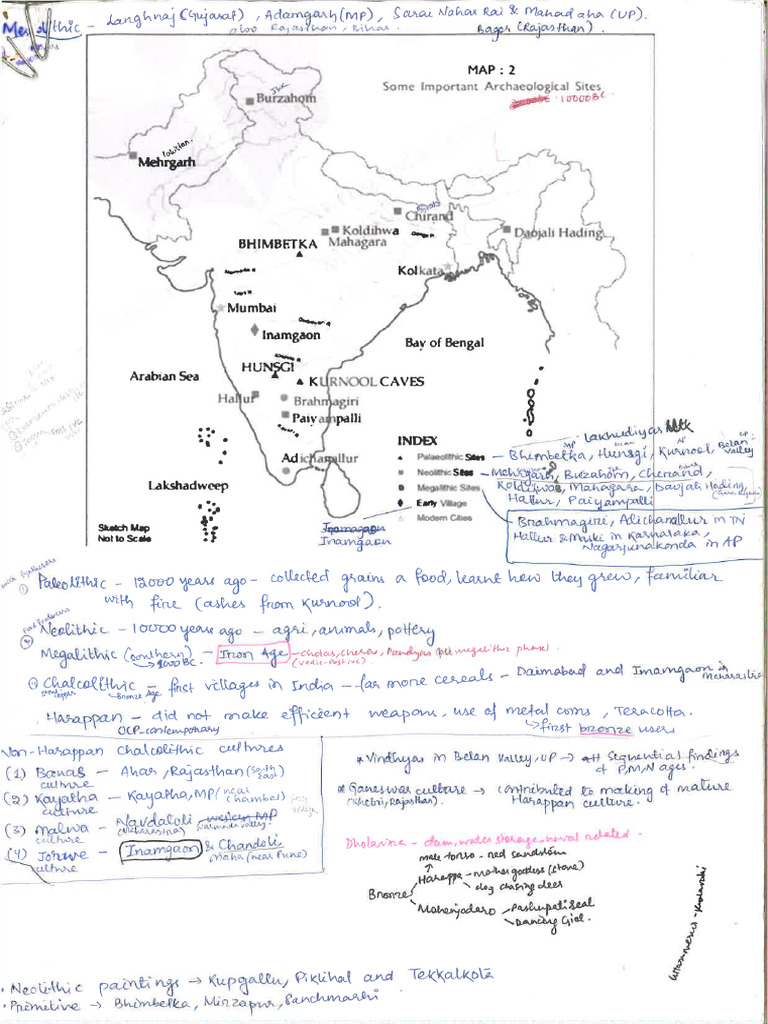 Mesolithic - Langhnaj (Gujarat), Adamgarh (MP), Sarai Nahar Rai & Mahadaha (UP).
also Rajasthan, Bihar. Bagor (Rajasthan).
MAP : 2
Some Important Archaeological Sites
10000BC
J&K
Burzahom
Pakistan
Mehrgarh
Chirand
Koldihwa
Mahagara
Ganga R
Daojali Hading
BHIMBETKA
Kolkata
Narmada R
Tapi R
Mumbai
Godavari R
Inamgaon
Bay of Bengal
Krishna R
HUNSGI
Arabian Sea
KURNOOL CAVES
Hallur
Brahmagiri
Paiyampalli
Adichanallur
Lakshadweep
INDEX
Palaeolithic Sites - Bhimbetka, Hunsgi, Kurnool, Belan valley
Neolithic Sites - Mehrgarh, Buzahom, Cherand,
Koldihwa, Mahagara, Daojali Hading,
Hallur, Paiyampalli
Megalithic Sites
Early Village
Modern Cities
Brahmagiri, Adichanallur in TN
Hallur & Maski in Karnataka,
Nagarjunakonda in AP
Sketch Map
Not to Scale
Inamgaon
Inamgaon
① Paleolithic - 12000 years ago - collected grains a food, learnt how they grew, familiar
with fire (ashes from Kurnool).
Food Producers
② Neolithic - 10000 years ago - agri, animals, pottery
Megalithic (southern) - Iron Age - cholas, cheras, Pandyas (pre megalithic phase)
→ 1000 BC. (vedic-positive)
Chalcolithic - first villages in India - far more cereals - Daimabad and Inamgaon in Maharashtra
Bronze Age
Harappan - did not make efficient weapons, use of metal coins, Teracotta.
OCP-contemporary
→ first bronze users
Non-Harappan Chalcolithic cultures
(1) Banas culture - Ahar, Rajasthan (South East)
(2) Kayatha culture - Kayatha, MP (near chambal)
(3) Malwa culture - Navdaloli western MP
(Maharashtra) Narmada valley.
(4) Jorwe culture - Inamgaon & Chandoli
Maha (near Pune)
* Vindhyas in Belan Valley, UP → Sequential findings
of P, M, N ages.
* Ganeswar culture → contributed to making of mature
(Khetri, Rajasthan). Harappan culture.
Dholavira - dam, water storage, naval related.
male torso - red sandstone
Harappa - mother goddess (stone)
dog chasing deer
Bronze
Mohenjodaro - Pashupati Seal
Dancing Girl.
• Neolithic paintings → Kupgallu, Piklihal and Tekkalkota
• Primitive → Bhimbetka, Mirzapur, Panchmarhi